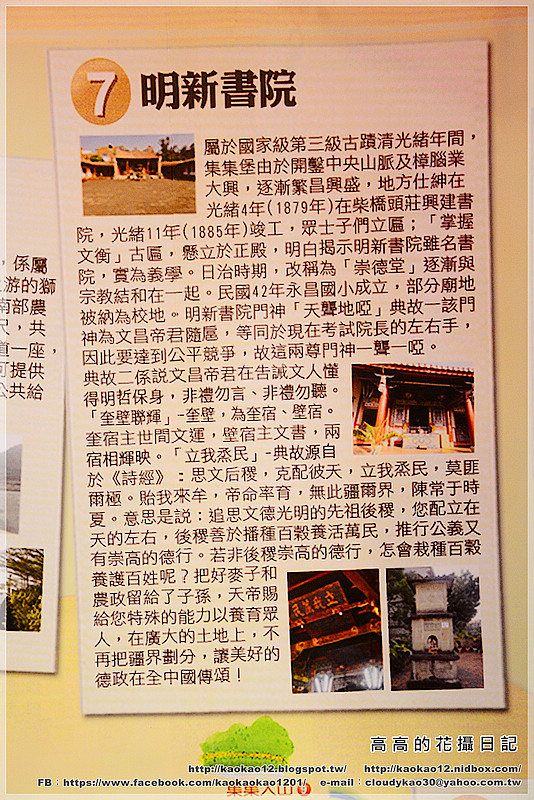 7 明新書院
屬於國家級第三級古蹟清光緒年間，
集集堡由於開鑿中央山脈及樟腦業
大興，逐漸繁昌興盛，地方仕紳在
光緒4年(1879年)在柴橋頭莊興建書
院，光緒11年(1885年)竣工，眾士子們立匾；「掌握
文衡」古區，懸立於正殿，明白揭示明新書院雖名書
院，實為義學。日治時期，改稱為「崇德堂」逐漸與
宗教結和在一起。民國42年永昌國小成立，部分廟地
被納為校地。明新書院門神「天聾地啞」典故一該門
神為文昌帝君隨扈，等同於現在考試院長的左右手，
因此要達到公平競爭，故這兩尊門神一聾一啞。
典故二係說文昌帝君在告誡文人懂
得明哲保身，非禮勿言、非禮勿聽。
「奎壁聯輝」-奎壁，為奎宿、壁宿。
奎宿主世間文運，壁宿主文書，兩
宿相輝映。「立我烝民」-典故源自
於《詩經》：思文后稷，克配彼天，立我烝民，莫匪
爾極。貽我來牟，帝命率育，無此疆爾界，陳常于時
夏。意思是說：追思文德光明的先祖後稷，您配立在
天的左右，後稷善於播種百穀養活萬民，推行公義又
有崇高的德行。若非後稷崇高的德行，怎會栽種百穀
養護百姓呢？把好麥子和
農政留給了子孫，天帝賜
給您特殊的能力以養育眾
人，在廣大的土地上，不
再把疆界劃分，讓美好的
德政在全中國傳頌！
，係屬
上游的獅
南部農
尺，共
道一座，
可提供
公共給
高高的花攝日記
http://kaokao12.blogspot.tw/ http://kaokao12.nidbox.com/
FB：https://www.facebook.com/kaokao1201/ e-mail：cloudykao30@yahoo.com.tw
集集大山